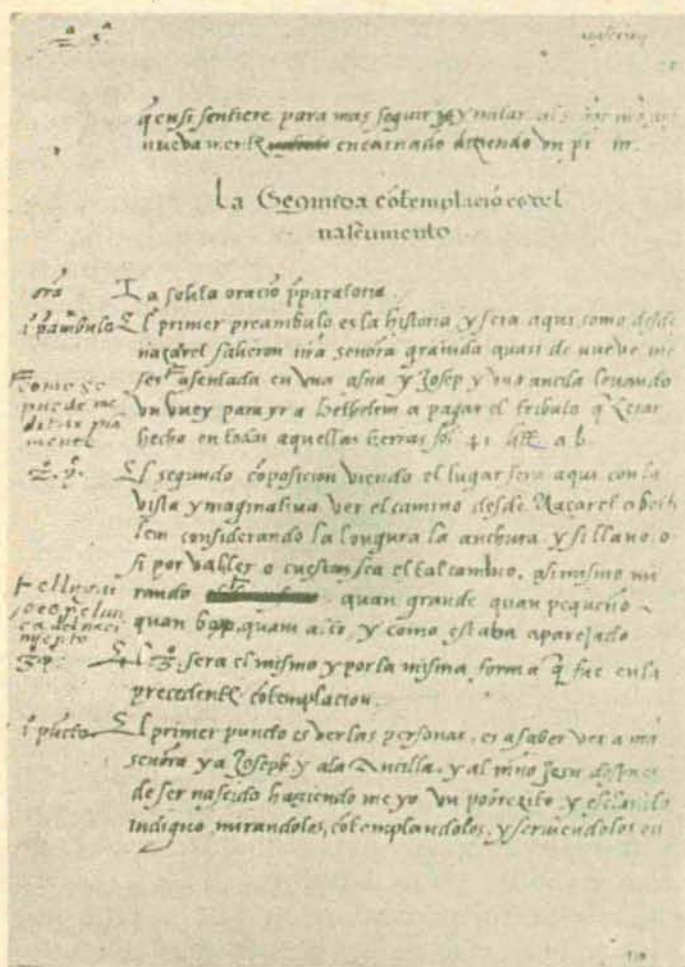 q̃ ensi sentiere para mas seguir y ymitar al
nuevamente encarnado diziendo vn pr̃ nr̃.
La Segunda cõtemplaciõ es del
nasçimiento
orõ
La solita oraciõ p̃paratoria.
i° pãmbulo
El primer preambulo es la historia y sera aqui como desde
nazaret salieron nr̃a señora grauida quasi de nueue me
ses
como se
puede me
ditar pia
mente
asentada en vna asna y Josep y vna ancila leuando
vn buey para yr a bethelem a pagar el tributo q̃ cesar
hecho en todas aquellas tierras fol
2° p°.
El segundo cõposicion viendo el lugar sera aqui con la
vista ymaginatiua ver el camino desde Nazaret a beth
lem considerando la longura la anchura y si llano o
si por valles o cuestas sea el tal camino. asimismo mi
rando
el lugar
o espelun
ca del naci
miento
quan grande quan pequeño
quan baxo quam alto, y como estaba aparejado
3° p°
El 3° sera el mismo y por la misma forma q̃ fue en la
precedente cõtemplacion.
i° pũcto
El primer puncto es ver las personas. es a saber ver a nr̃a
señora y a Joseph y a la Ancilla. y al niño Jesu despues
de ser nascido haziendo me yo vn pobrezito y esclauito
indigno mirandolos, cõtemplandolos, y seruiendolos en